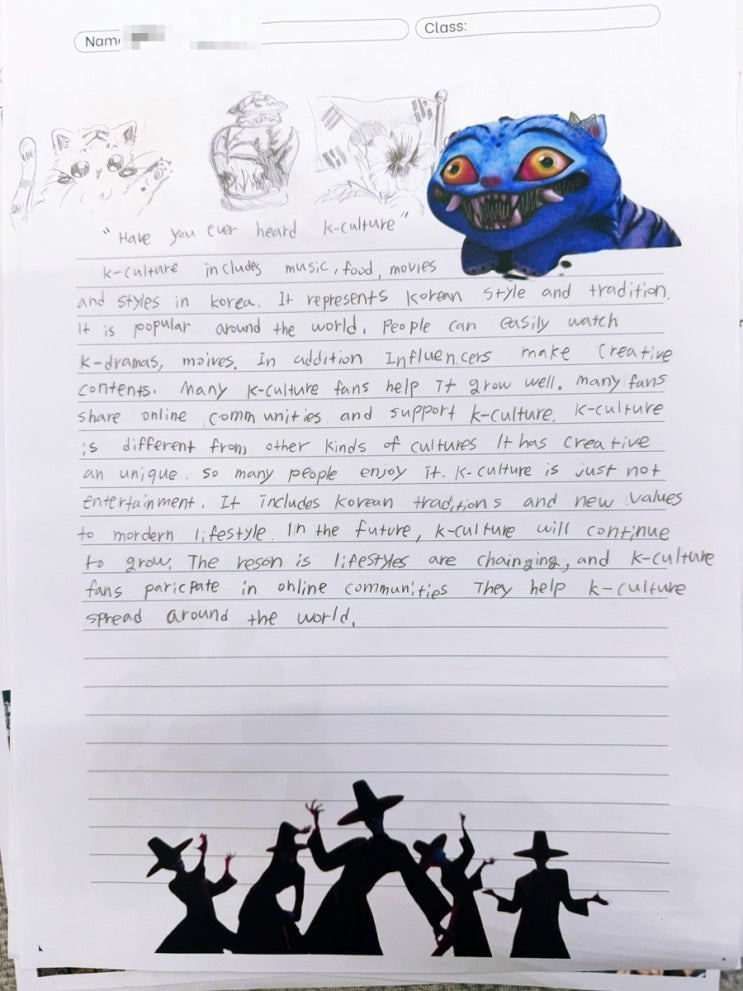 Name
Class:
"Have you ever heard k-culture"
k-culture includes music, food, movies
and styles in korea. It represents korean style and tradition.
It is popular around the world. People can easily watch
k-dramas, moives. In addition Influencers make creative
contents. Many k-culture fans help it grow well. many fans
share online communities and support k-culture. k-culture
is different from other kinds of cultures It has creative
an unique. so many people enjoy it. k-culture is just not
entertainment. It includes korean traditions and new values
to mordern lifestyle. In the future, k-culture will continue
to grow. The reson is lifestyles are chainging, and k-culture
fans paricpate in online communities They help k-culture
spread around the world.